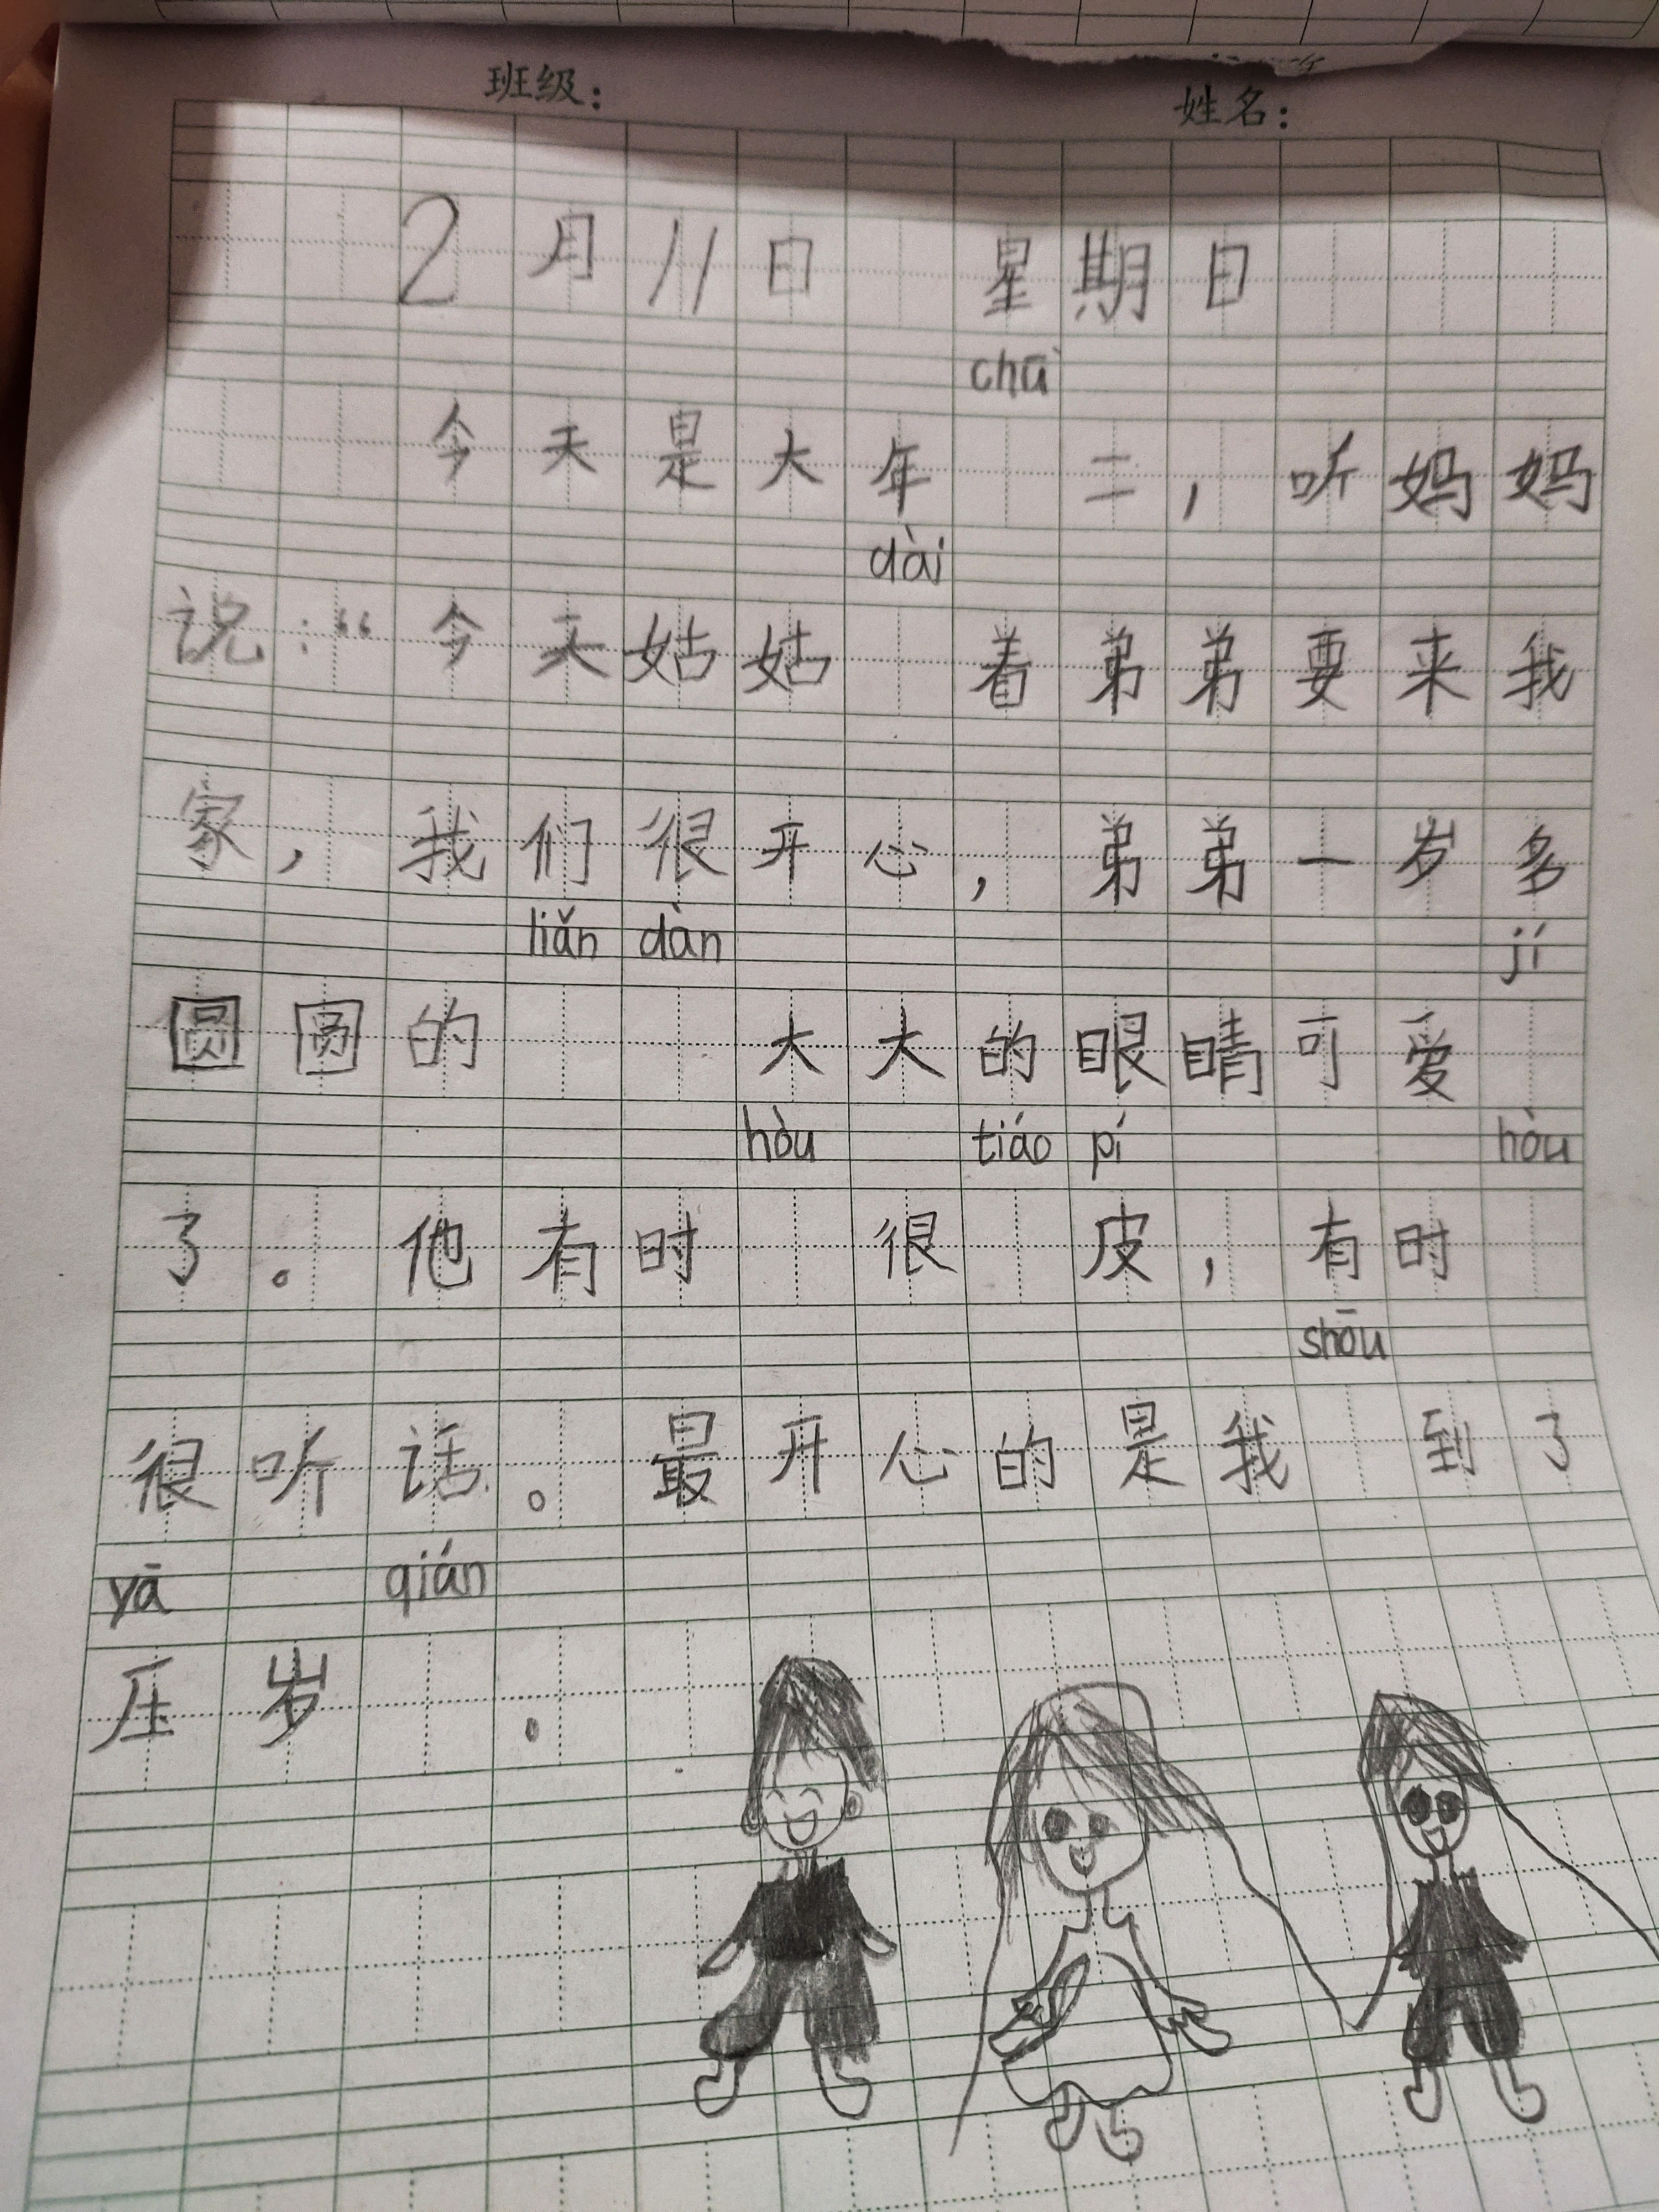 班级： 姓名：
2月11日 星期日
chū
今天是大年 二，听妈妈
dài
说：“今天姑姑 着弟弟要来我
家，我们很开心，弟弟一岁多
liǎn dàn jí
圆圆的 大大的眼睛可爱
hòu tiáo pí hòu
了。他有时 很 皮，有时
shōu
很听话。最开心的是我 到了
yā qián
压岁 。